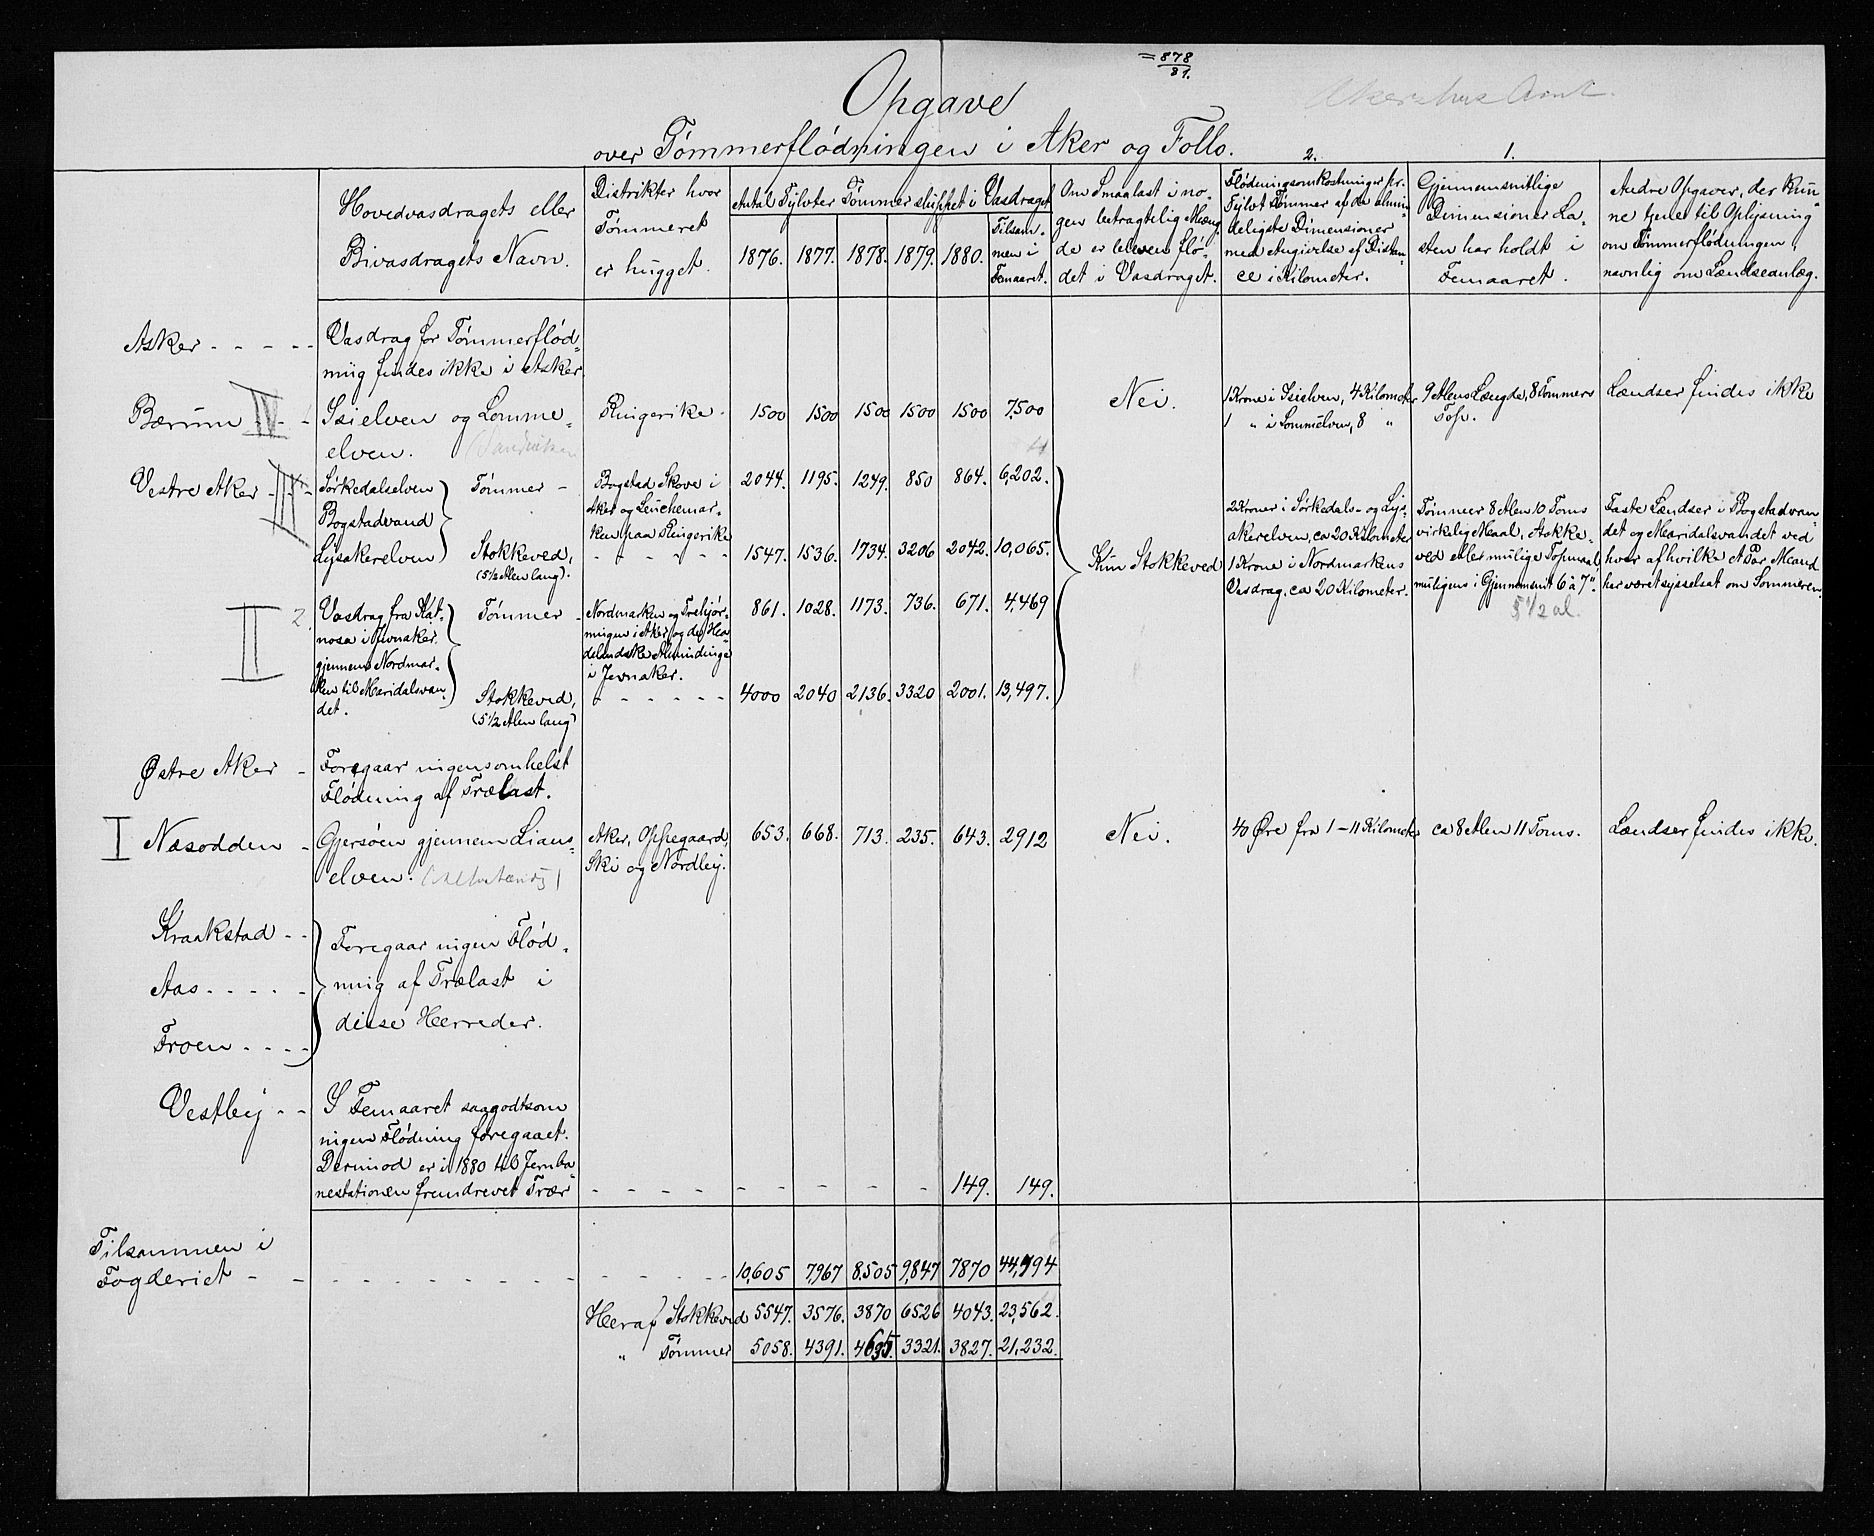 =878
81.
Akershus Amt.
Opgave
over Tømmerflødningen i Aker og Follo.
2.
1.
Hovedvasdragets eller
Bivasdragets Navn.
Distrikter hvor
Tømmeret
er hugget.
Antal Tylvter Tømmer slippet i Vasdraget
1876. 1877. 1878. 1879. 1880.
Tilsam-
men i
Femaaret.
Om Smaalast i no-
gen betragtelig Mæng-
de er bleven flø-
det i Vasdraget.
Flødningsomkostninger pr.
Tylvt Tømmer af de almin-
deligste Dimensioner
med Angivelse af Distan-
ce i Kilometer.
Gjennemsnitlige
Dimensioner La-
sten har holdt i
Femaaret.
Andre Opgaver, der kun-
ne tjene til Oplysning
om Tømmerflødningen,
navnlig om Lændseanlæg.
Asker - - - - -
Vasdrag for Tømmerflød-
ning findes ikke i Asker.
Bærum IV - -
Isielven og Lomme-
elven.
Ringerike.
1500 1500 1500 1500 1500 7,500
Nei.
1 Krone i Isielven, 4 Kilometer
1 " i Lommelven, 8 "
9 Alens Længde, 8 Tommers
Top.
Lændser findes ikke
Vestre Aker - III -
Sørkedalselven
Bogstadvand
Lysakerelven
Tømmer -
Bogstad Skove i
Aker og Leuchemar-
ken paa Ringerike
2044. 1195. 1249. 850 864. 6,202.
Stokkeved,
(5 1/2 Alen lang).
- - - - -
1547. 1536. 1734. 3206 2042. 10,065.
Kun Stokkeved
2 Kroner i Sørkedals- og Lys-
akerelven, ca 20 Kilometer
1 Krone i Nordmarkens
Vasdrag, ca 20 Kilometer.
Tømmer 8 Alen 10 Toms
virkelig Maal, Stokke-
ved eller mulige Topmaal,
muligens i Gjennemsnit 6 à 7".
5 1/2 al.
Faste Lændser i Bogstadvan-
det og Maridalsvandet ved
hver af hvilke et Par Mand
har været sysselsat om Sommeren.
II 2.
Vasdrag fra Kat-
nosa i Jevnaker
gjennem Nordmar-
ken til Maridalsvan-
det.
Tømmer -
Nordmarken og Trehjør-
ningen i Aker og de Ha-
delandske Almindinger
i Jevnaker.
861. 1028. 1173. 736. 671. 4,469
Stokkeved,
(5 1/2 Alen lang)
- - - - -
4000 2040 2136. 3320 2001. 13,497.
Østre Aker -
Foregaar ingensomhelst
Flødning af Trælast.
I Næsodden -
Gjersøen gjennem Lians-
elven.
Aker, Oppegaard,
Ski og Nordby.
653. 668. 713. 235. 643. 2912
Nei.
40 Øre fra 1-11 Kilometer
ca 8 Alen 11 Toms.
Lændser findes ikke.
Kraakstad - -
Aas - - - - -
Froen - - - -
Foregaar ingen Flød-
ning af Trælast i
disse Herreder.
Vestby - -
I Femaaret saagodtsom
ingen Flødning foregaaet.
Derimod er i 1880 til Jernba-
nestationen fremdrevet Trær
- - - - - - - - - 149. 149.
Tilsammen i
Fogderiet - - - - - - - - - - -
10,605 7,967 8,505 9,847 7870 44,794
Heraf Stokkeved 5547. 3576. 3870 6526 4043. 23,562.
" Tømmer 5058. 4391. 4635. 3321. 3827. 21,232.